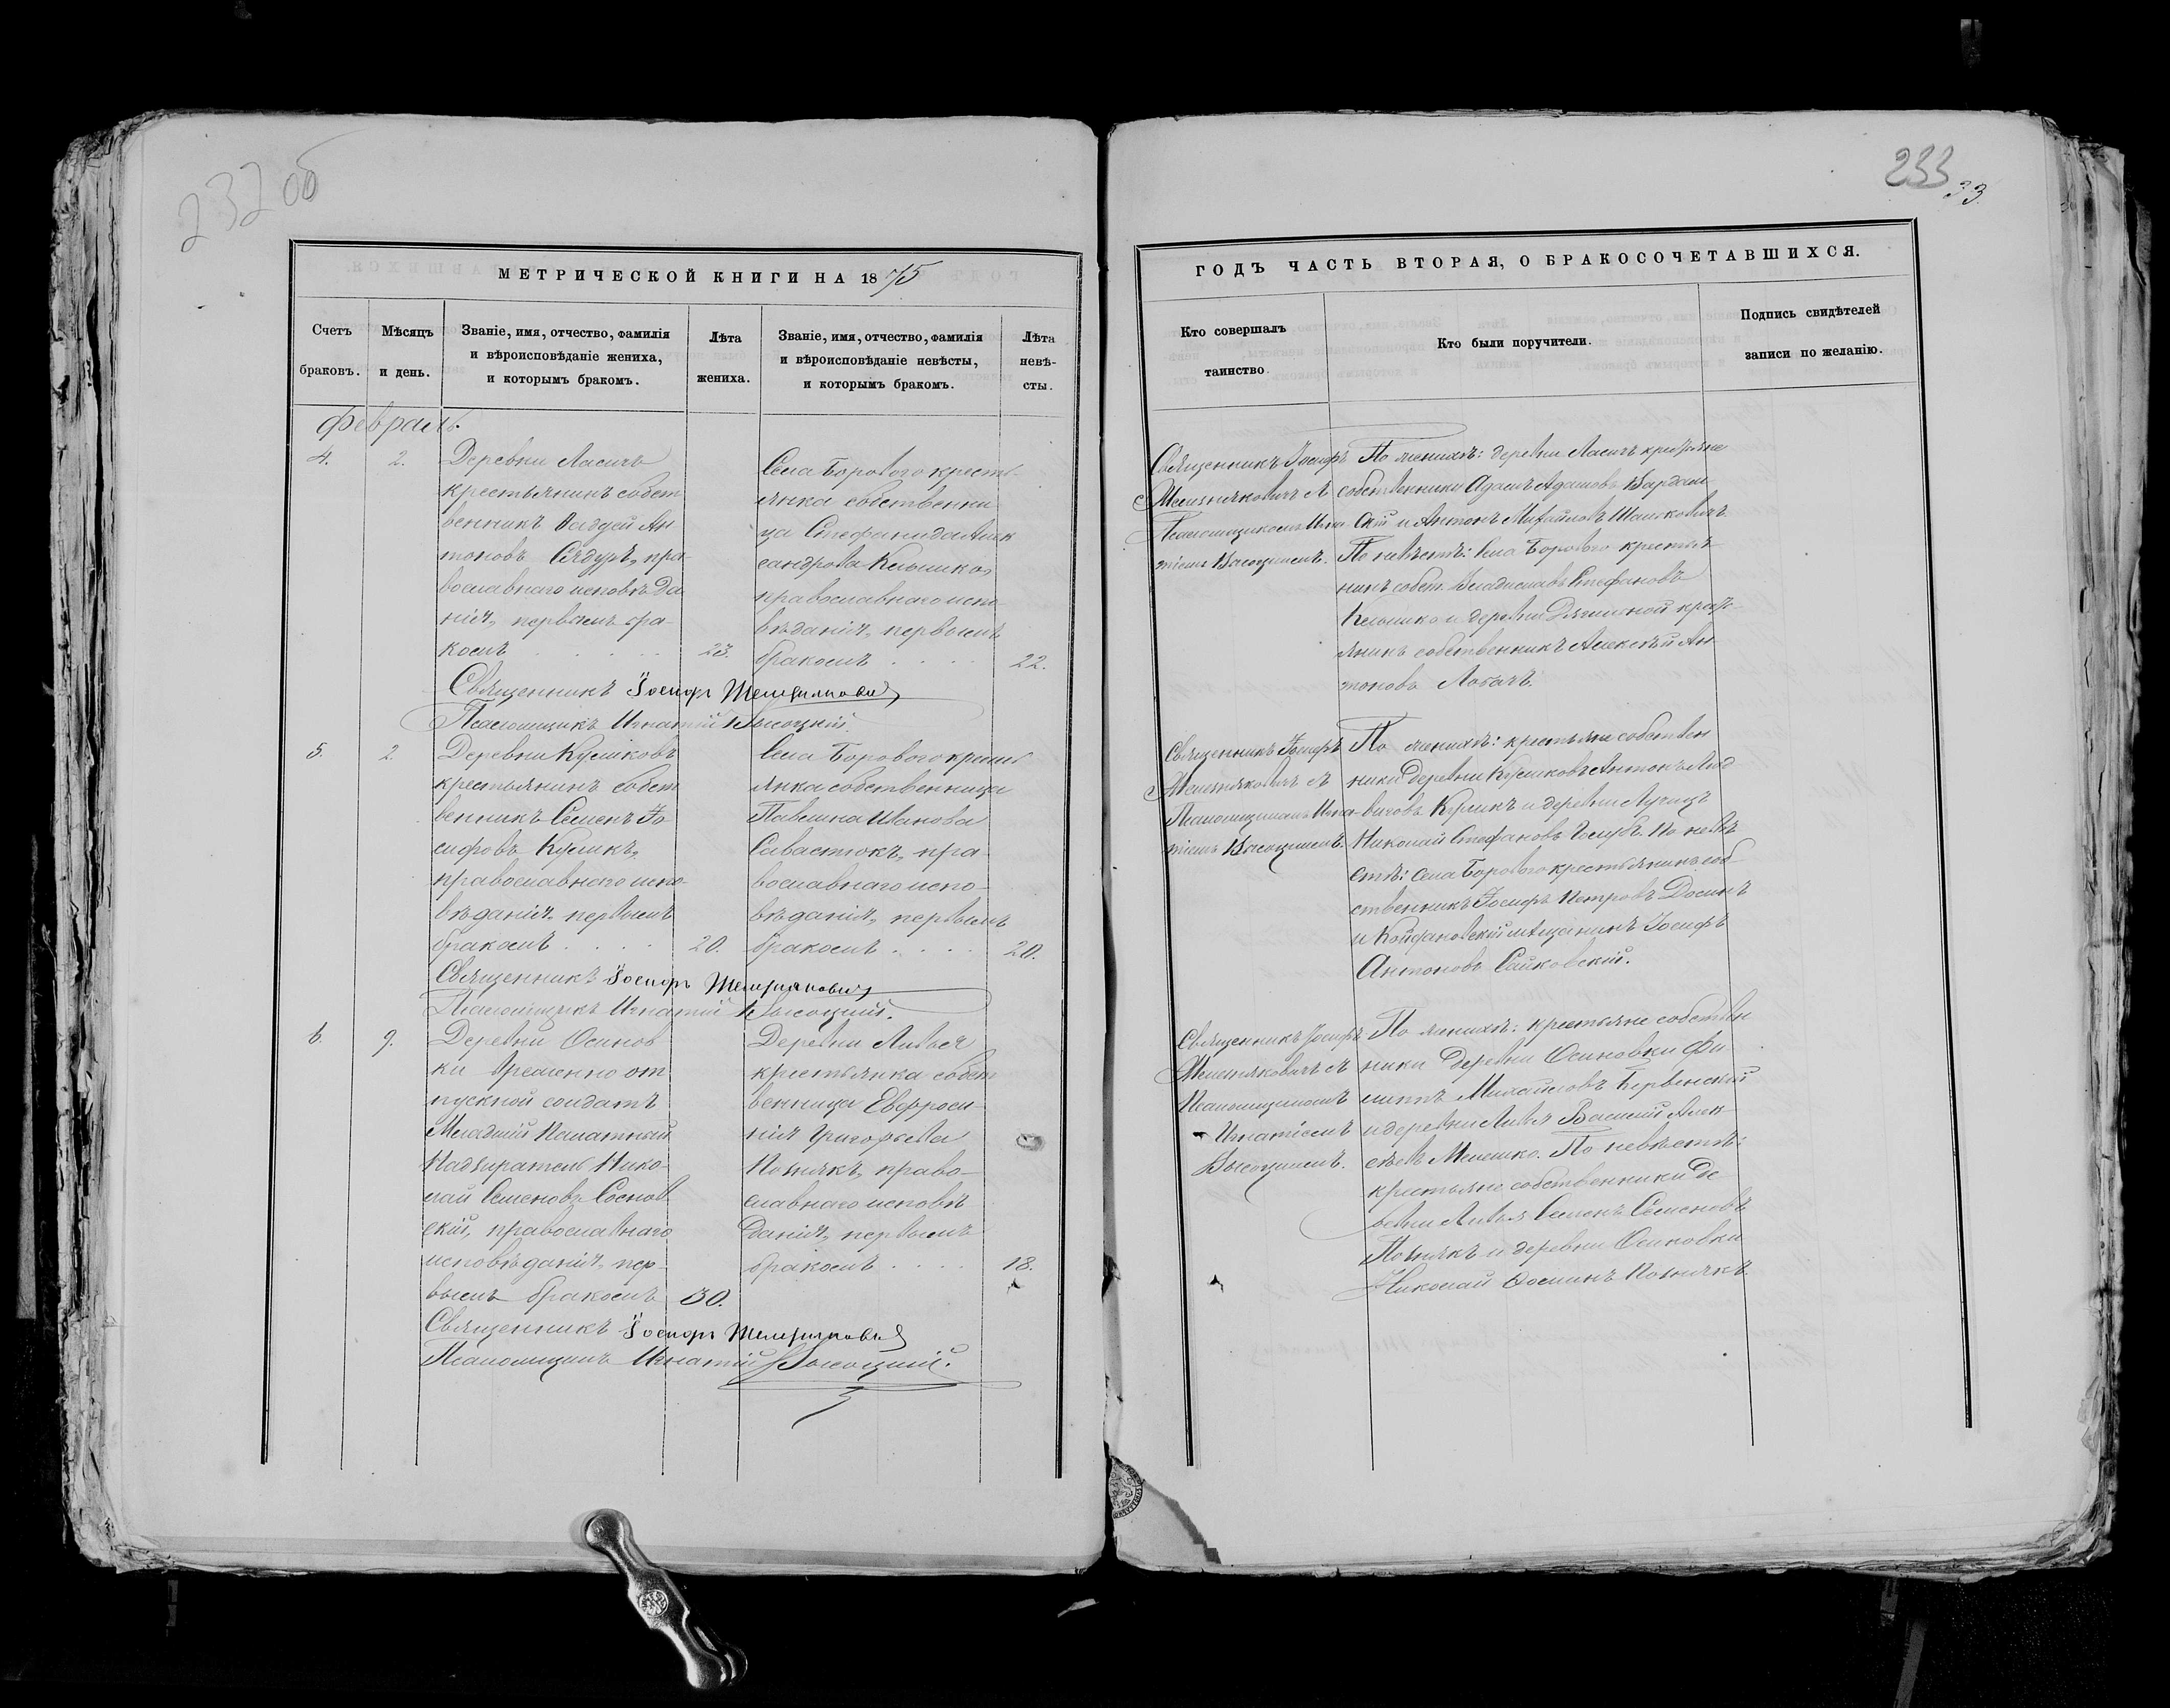 232 об
МЕТРИЧЕСКОЙ КНИГИ НА 1875
Счетъ браковъ.
Мѣсяцъ и день.
Званіе, имя, отчество, фамилія и вѣроисповѣданіе жениха, и которымъ бракомъ.
Лѣта жениха.
Званіе, имя, отчество, фамилія и вѣроисповѣданіе невѣсты, и которымъ бракомъ.
Лѣта невѣ-сты.
Февраль.
4.
2.
Деревни Ласичъ
крестьянинъ собст
венникъ Фаддей Ан
тоновъ пра-
вославнаго исповѣда
нія, первымъ бра-
комъ
23.
Села Борового кресть-
янка собственни
ца Стефанида Алек
сандрова
православнаго испо
вѣданія, первымъ
бракомъ
22.
Священникъ Іосифъ Желѣзняковичъ
Псаломщикъ Игнатій Высоцкій.
5.
2.
Деревни
крестьянинъ собст
венникъ Семенъ Іо
сифовъ
православнаго испо-
вѣданія, первымъ
бракомъ
20.
Села Борового кресть
янка собственница
Иванова
Савастюкъ, пра-
вославнаго испо-
вѣданія, первымъ
бракомъ
20.
Священникъ Іосифъ Желѣзняковичъ
Псаломщикъ Игнатій Высоцкій.
6.
9.
Деревни Осинов
ки временно от
пускной солдатъ
Младшій Палатный
Надзиратель Нико-
лай Семеновъ Соснов
скій, православнаго
исповѣданія, пер-
вымъ бракомъ
30.
Деревни Литвы
крестьянка собст
венница Евфроси-
нія Григорьева
Познякъ, право-
славнаго исповѣ
данія, первымъ
бракомъ
18.
Священникъ Іосифъ Желѣзняковичъ
Псаломщикъ Игнатій Высоцкій.
233
33
ГОДЪ ЧАСТЬ ВТОРАЯ, О БРАКОСОЧЕТАВШИХСЯ.
Кто совершалъ таинство.
Кто были поручители.
Подпись свидѣтелей записи по желанію.
Священникъ Іосифъ
Желѣзняковичъ съ
Псаломщикомъ Игна
тіемъ Высоцкимъ.
По женихѣ: деревни Ласичъ крестьяне
собственники Адамъ Адамовъ
и Антонъ Михайловъ
По невѣстѣ: Села Борового крестья
нинъ собст. Владиславъ Стефановъ
и деревни кресть
янинъ собственникъ Алексѣй Ан
тоновъ
Священникъ Іосифъ
Желѣзняковичъ съ
Псаломщикомъ Игна
тіемъ Высоцкимъ.
По женихѣ: крестьяне собствен
ники деревни Антонъ Люд
виговъ и деревни
Николай Стефановъ По невѣ
стѣ: Села Борового крестьянинъ соб
ственникъ Іосифъ Петровъ
и Койдановскій мѣщанинъ Іосифъ
Антоновъ
Священникъ Іосифъ
Желѣзняковичъ съ
Псаломщикомъ
Игнатіемъ
Высоцкимъ.
По женихѣ: крестьяне собствен
ники деревни Осиновки Фи
липпъ Михайловъ
и деревни Литвы Василій Алек
сѣевъ Мелешко. По невѣстѣ:
крестьяне собственники де
ревни Литвы Семенъ Семеновъ
Познякъ и деревни Осиновки
Николай Познякъ.